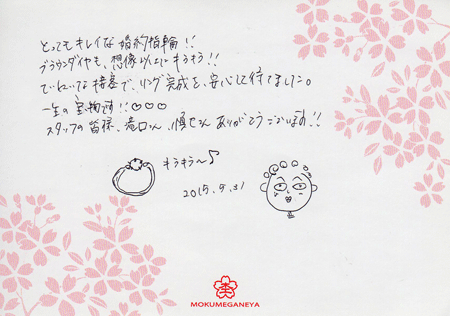 とってもキレイな婚約指輪!!
ブラウンダイヤも、想像以上にキラキラ!!
ていねいな接客で、リング完成を、安心して待てました。
一生の宝物です!!♡♡♡
スタッフの皆様、滝口さん、慎也さん ありがとうございます!!
キラキラ〜♪
2015.9.31
MOKUMEGANEYA